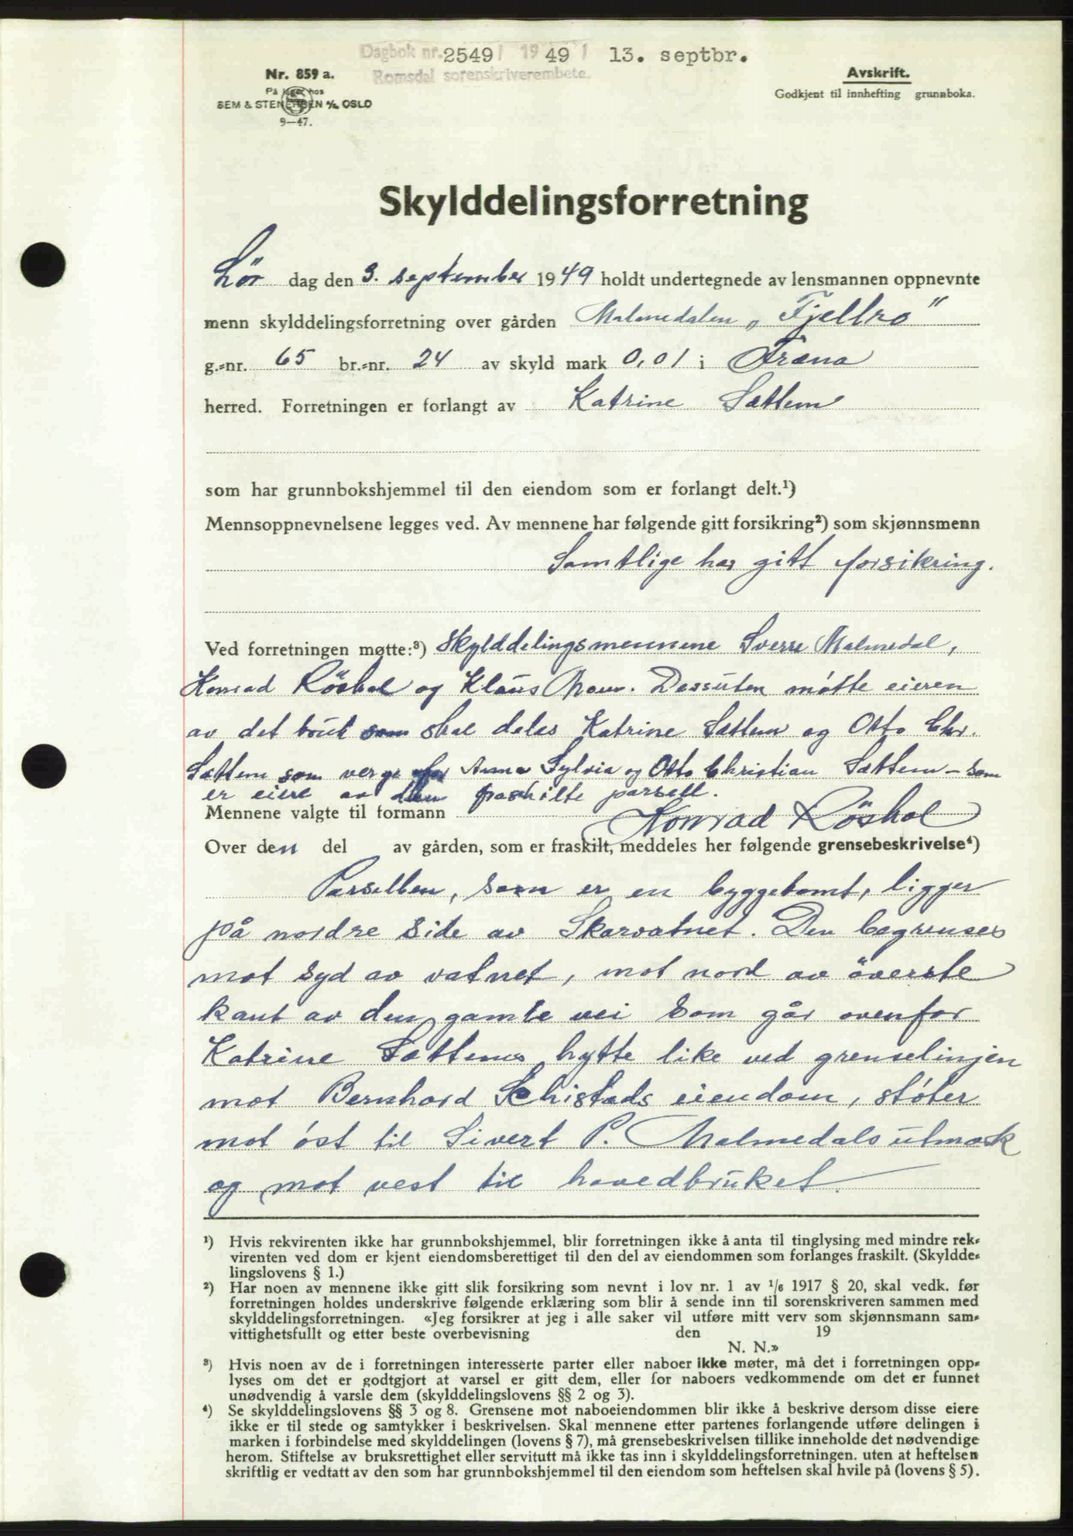 Dagbok nr. 2549 / 1949 / 13. septbr.
Romsdal sorenskriverembete.
Nr. 859 a.
På lager hos
SEM & STENERSEN A/S, OSLO
9—47.
Avskrift.
Godkjent til innhefting grunnboka.
Skylddelingsforretning
Lör dag den 3. september 1949 holdt undertegnede av lensmannen oppnevnte
menn skylddelingsforretning over gården Malmedalen „Fjellro”
g.-nr. 65 br.-nr. 24 av skyld mark 0,01 i Fræna
herred. Forretningen er forlangt av Katrine Sættem
som har grunnbokshjemmel til den eiendom som er forlangt delt.¹)
Mennsoppnevnelsene legges ved. Av mennene har følgende gitt forsikring²) som skjønnsmenn
Samtlige har gitt forsikring.
Ved forretningen møtte:³) Skylddelingsmennene Sverre Malmedal,
Konrad Röshol og Klaus Moen. Dessuten møtte eieren
av det bruk som skal deles Katrine Sættem og Otto Chr.
Sættem som verge for Anna Sylvia og Otto Christian Sættem – som
er eiere av den fraskilte parsell.
Mennene valgte til formann Konrad Röshol
Over den del av gården, som er fraskilt, meddeles her følgende grensebeskrivelse⁴)
Parsellen, som er en byggetomt, ligger
på nordre side av Skarvatnet. Den begrenses
mot syd av vatnet, mot nord av överste
kant av den gamle vei som går ovenfor
Katrine Sættems hytte like ved grenselinjen
mot Bernhard Schistads eiendom, støter
mot øst til Sivert P. Malmedals utmark
og mot vest til hovedbruket.
¹) Hvis rekvirenten ikke har grunnbokshjemmel, blir forretningen ikke å anta til tinglysing med mindre rek-
virenten ved dom er kjent eiendomsberettiget til den del av eiendommen som forlanges fraskilt. (Skyldde-
lingslovens § 1.)
²) Har noen av mennene ikke gitt slik forsikring som nevnt i lov nr. 1 av 1/6 1917 § 20, skal vedk. før
forretningen holdes underskrive følgende erklæring som blir å sende inn til sorenskriveren sammen med
skylddelingsforretningen. «Jeg forsikrer at jeg i alle saker vil utføre mitt verv som skjønnsmann sam-
vittighetsfullt og etter beste overbevisning den 19
N. N.»
³) Hvis noen av de i forretningen interesserte parter eller naboer ikke møter, må det i forretningen opp-
lyses om det er godtgjort at varsel er gitt dem, eller for naboers vedkommende om det er funnet
unødvendig å varsle dem (skylddelingslovens §§ 2 og 3).
⁴) Se skylddelingslovens §§ 3 og 8. Grensene mot naboeiendommen blir ikke å beskrive dersom disse eiere
ikke er til stede og samtykker i beskrivelsen. Skal mennene etter partenes forlangende utføre delingen i
marken i forbindelse med skylddelingen (lovens § 7), må grensebeskrivelsen tillike inneholde det nødvendige
herom. Stiftelse av bruksrettighet eller servitutt må ikke tas inn i skylddelingsforretningen. uten at heftelsen
skriftlig er vedtatt av den som har grunnbokshjemmel til den eiendom som heftelsen skal hvile på (lovens § 5).